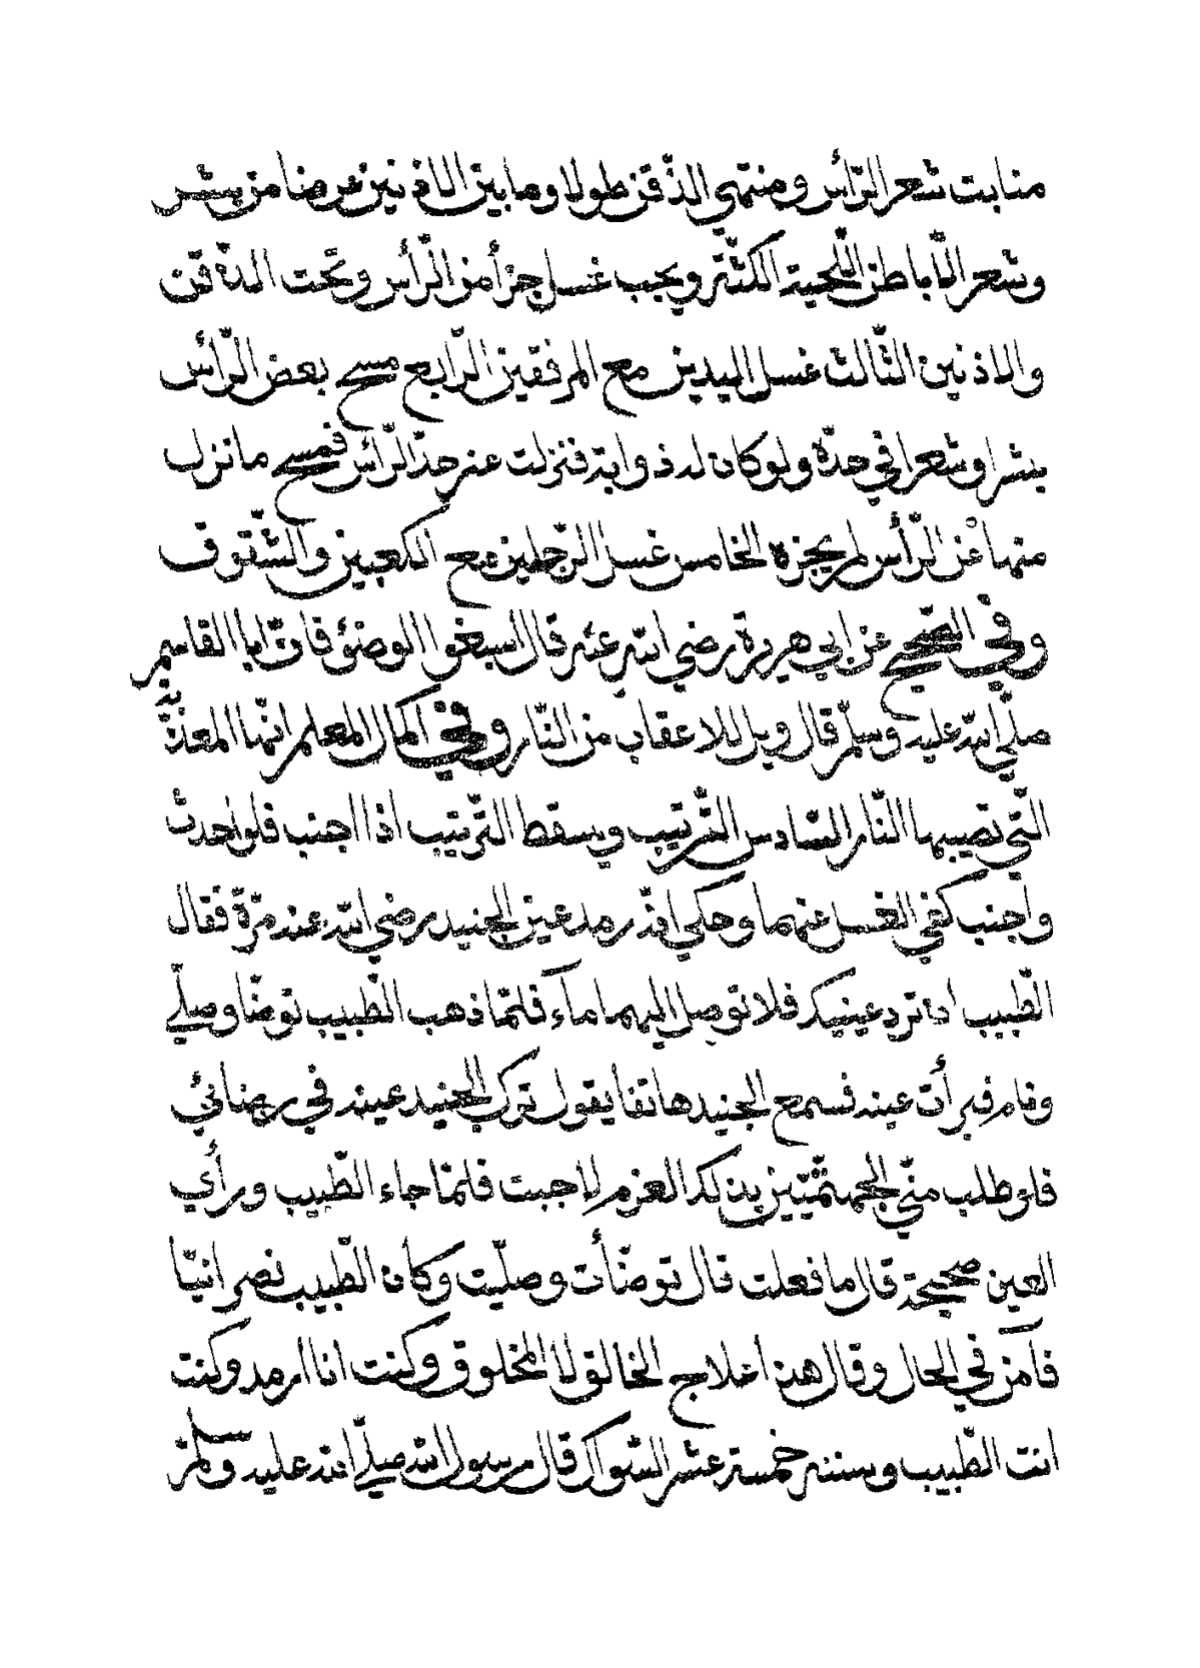 منابت شعر الرّأس ومنتهي الذّقن طولا وما بين الاذنين عرضا من بشر
وشعر الّا باطن اللّحية الكثّة ويجب غسل جزأ من الرّأس وتحت الذّقن
والاذنين الثّالث غسل اليدين مع المرفقين الرّابع مسح بعض الرّأس
بشرا وشعرا في حدّه ولو كان له ذوابة فنزلت عن حدّ الرّأس فمسح ما نزل
منها عن الرّأس لم يجزه الخامس غسل الرّجلين مع الكعبين والشّقوق
وفي الصّحيح عن ابي هريرة رضي الله عنه قال اسبغوا الوضئ فانّ ابا القاسم
صلّي الله عليه وسلّم قال ويل للاعقاب من النّار وفي اكمال المعلم انّما المعذّبة
الّتي تصيبها النّار السّادس التّرتيب ويسقط التّرتيب اذا اجنب فلو احدث
واجنب كفي الغسل عنهما وحكي انّه رمد عين الجنيد رضي الله عنه مرّة فقال
الطّبيب ان ترد عينيك فلا توصل اليهما ماء فلمّا ذهب الطّبيب توضّا وصلّي
ونام فبرأت عينه فسمع الجنيد هاتفا يقول ترك الجنيد عينه في رضائي
فلو طلب منّي الجهنّميّين بذلك العزم لاجبت فلمّا جاء الطّبيب ورأي
العين صحيحة قال ما فعلت قال توضّأت وصلّيت وكان الطّبيب نصرانيّا
فآمن في الحال وقال هذا علاج الخالق لا المخلوق وكنت انا ارمد وكنت
انت الطّبيب وسننه خمسة عشر السّواك قال رسول الله صلّي الله عليه وسلّم